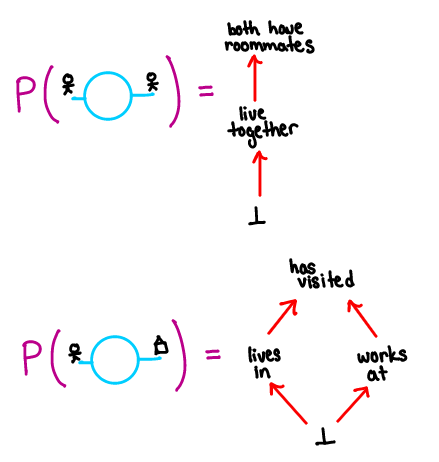 both have
roommates
P( ) =
live
together
⊥
has
visited
P( ) =
lives
in
works
at
⊥